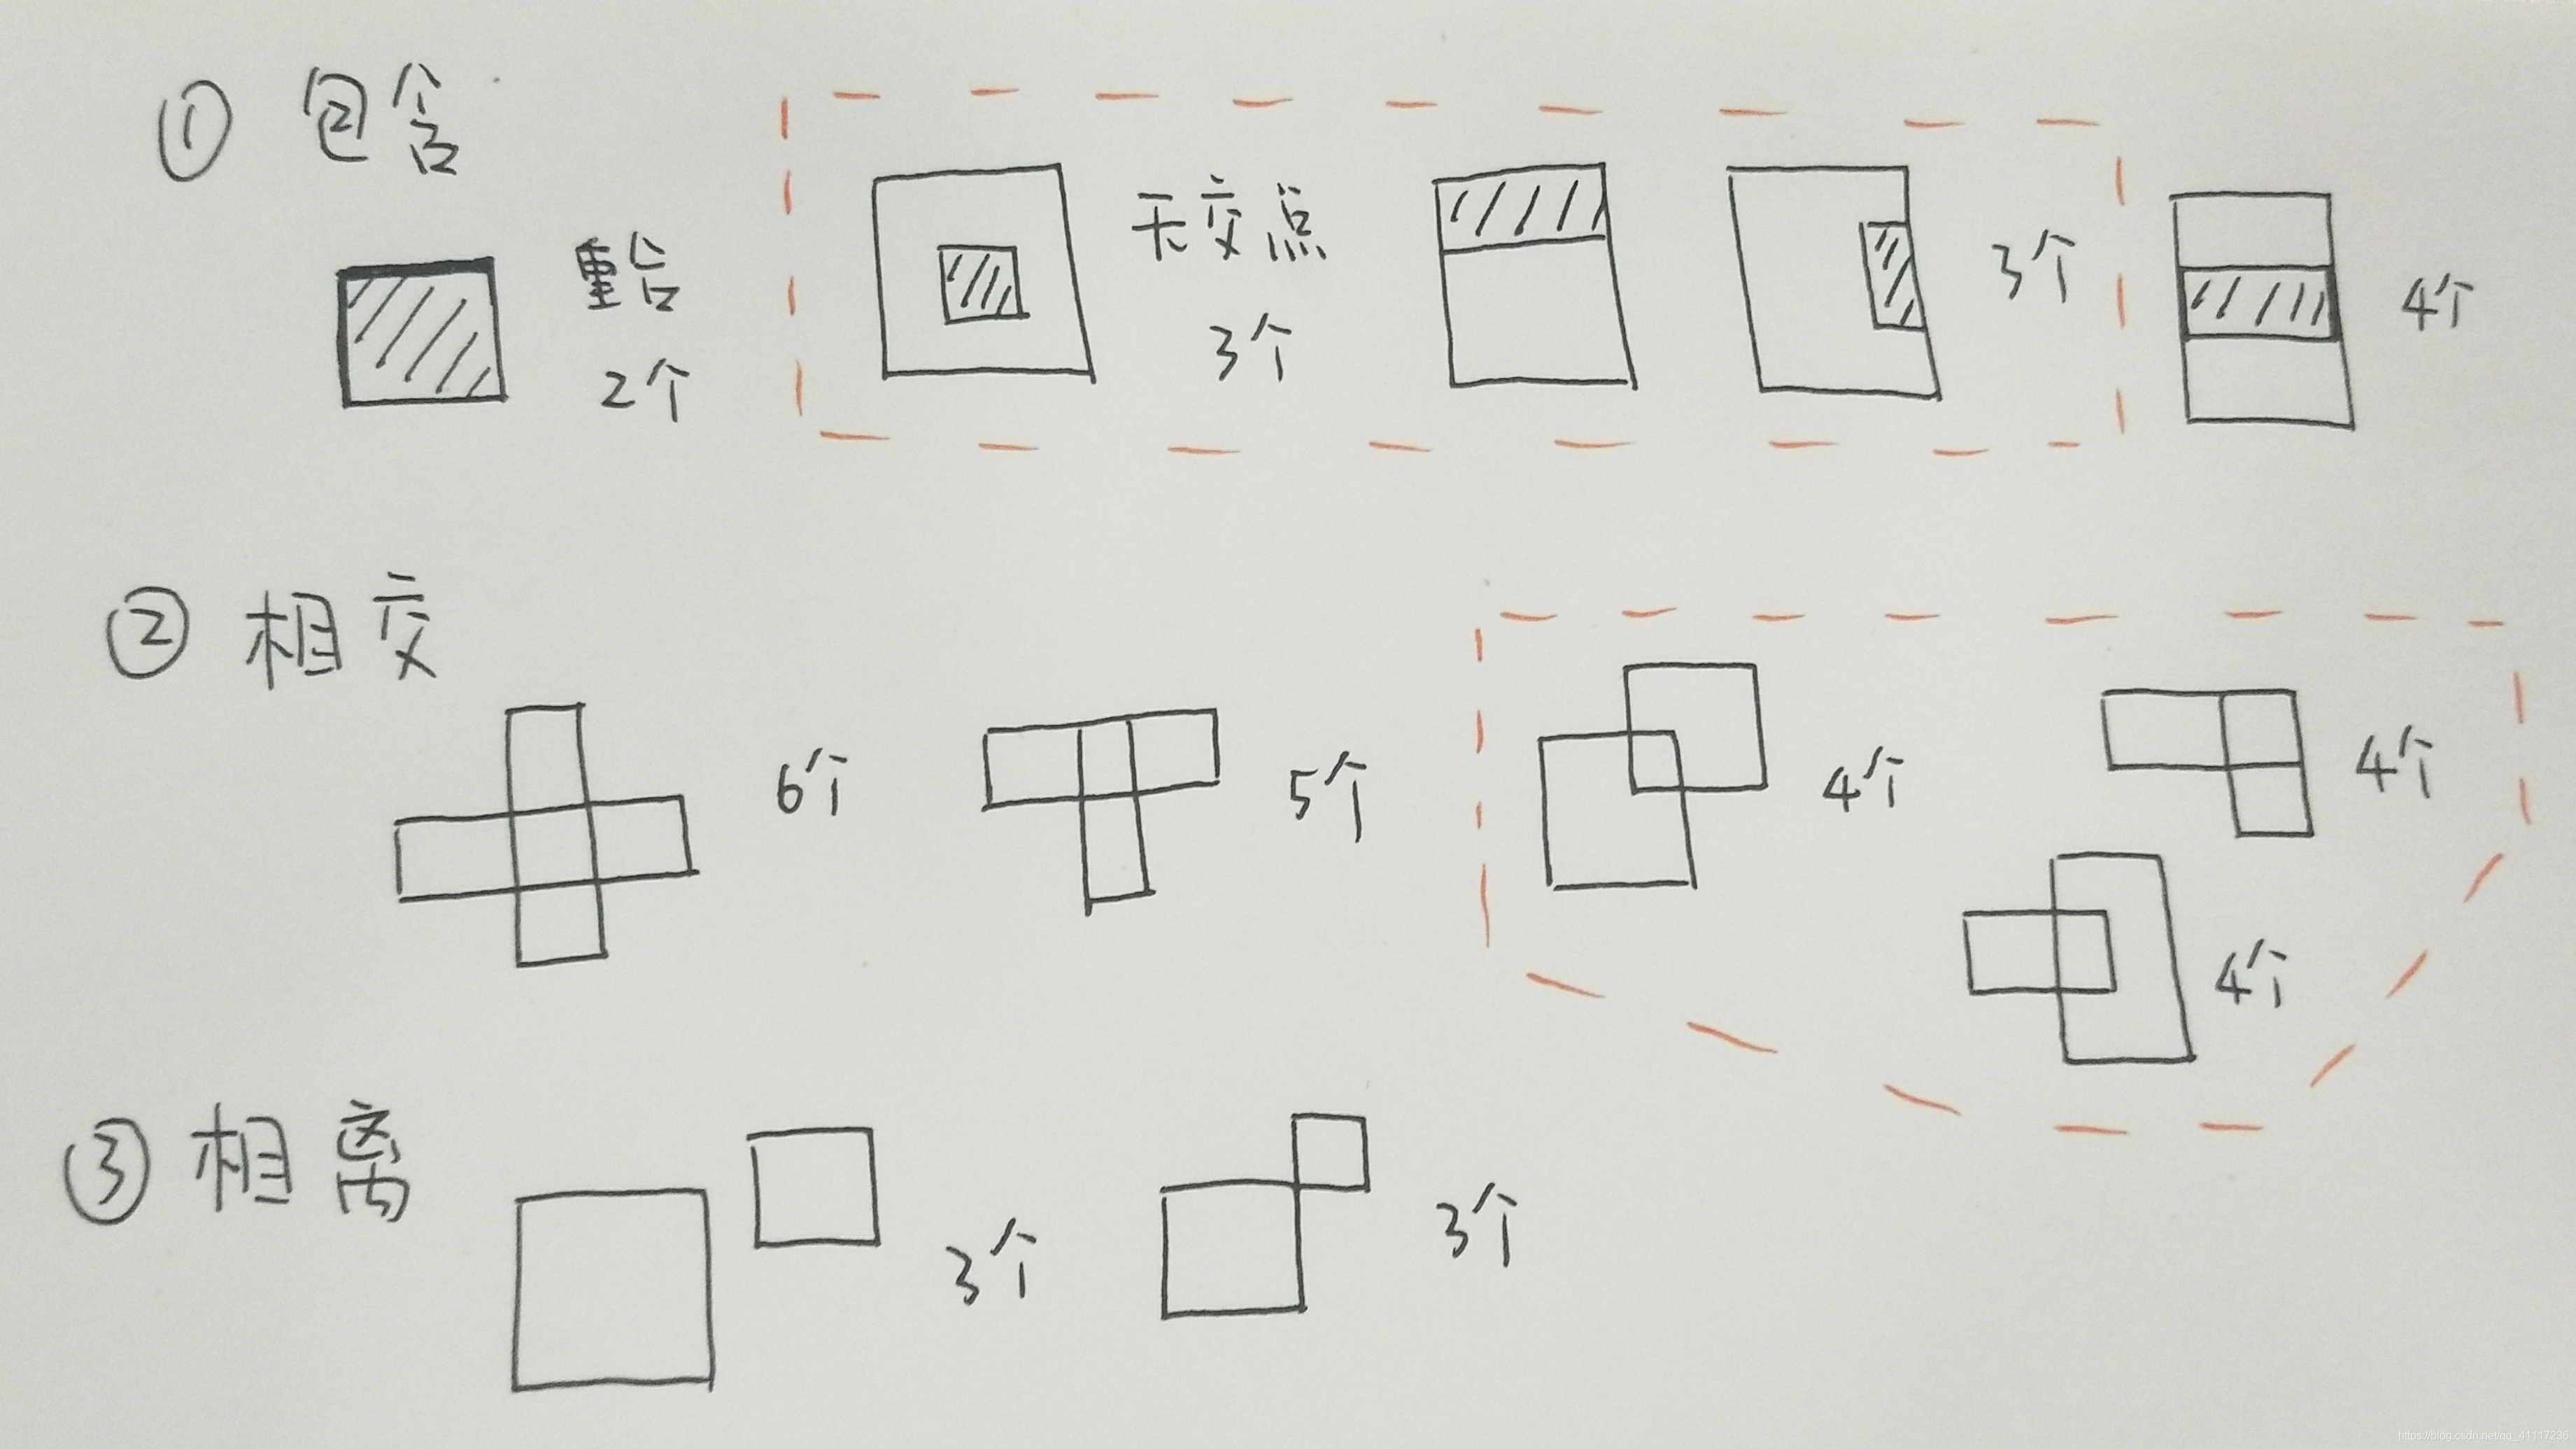 ① 包含
重合
2个
无交点
3个
3个
4个
② 相交
6个
5个
4个
4个
4个
③ 相离
3个
3个
https://blog.csdn.net/qq_41117236